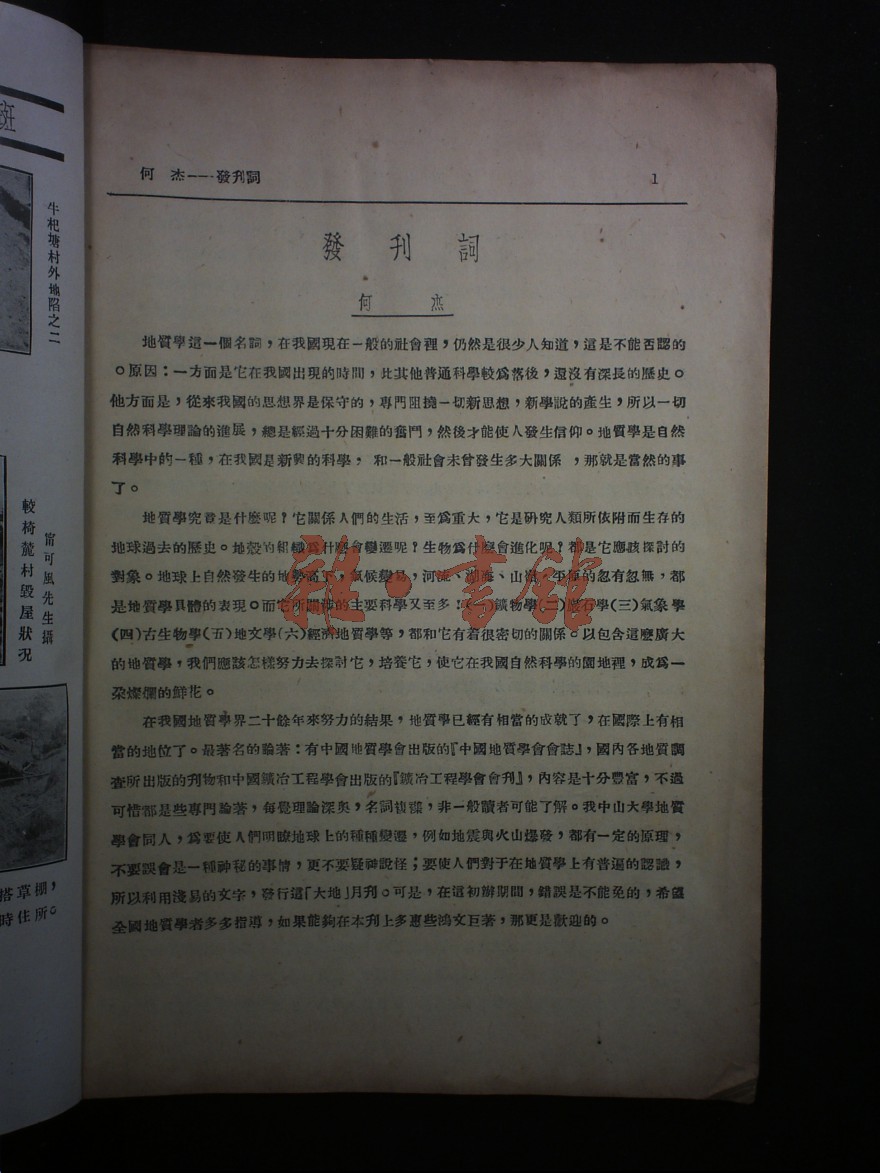 何 杰——發刊詞 1
發刊詞
何 杰
地質學這一個名詞，在我國現在一般的社會裡，仍然是很少人知道，這是不能否認的
。原因：一方面是它在我國出現的時間，比其他普通科學較爲落後，還沒有深長的歷史。
他方面是，從來我國的思想界是保守的，專門阻撓一切新思想，新學說的產生，所以一切
自然科學理論的進展，總是經過十分困難的奮鬥，然後才能使人發生信仰。地質學是自然
科學中的一種，在我國是新興的科學，和一般社會未曾發生多大關係，那就是當然的事
了。
地質學究竟是什麼呢？它關係人們的生活，至爲重大，它是研究人類所依附而生存的
地球過去的歷史。地殼的組織爲什麼會變遷呢？生物爲什麼會進化呢？都是它應該探討的
對象。地球上自然發生的地勢高下，氣候變易，河流、湖海、山嶽、平原的忽有忽無，都
是地質學具體的表現。而它所關涉的主要科學又至多：(一)鑛物學(二)岩石學(三)氣象學
(四)古生物學(五)地文學(六)經濟地質學等，都和它有着很密切的關係。以包含這麼廣大
的地質學，我們應該怎樣努力去探討它，培養它，使它在我國自然科學的園地裡，成爲一
朶燦爛的鮮花。
在我國地質學界二十餘年來努力的結果，地質學已經有相當的成就了，在國際上有相
當的地位了。最著名的論著：有中國地質學會出版的『中國地質學會會誌』，國內各地質調
查所出版的刊物和中國鑛冶工程學會出版的『鑛冶工程學會會刊』，內容是十分豐富，不過
可惜都是些專門論著，每覺理論深奧，名詞複雜，非一般讀者可能了解。我中山大學地質
學會同人，爲要使人們明瞭地球上的種種變遷，例如地震與火山爆發，都有一定的原理，
不要誤會是一種神秘的事情，更不要疑神說怪；要使人們對于在地質學上有普遍的認識，
所以利用淺易的文字，發行這「大地」月刊。可是，在這初辦期間，錯誤是不能免的，希望
全國地質學者多多指導，如果能夠在本刊上多惠些鴻文巨著，那更是歡迎的。
斑
牛杷塘村外地陷之二
甯可風先生攝
較椅蔃村毀屋狀况
搭草棚，
時住所。
雜·書館